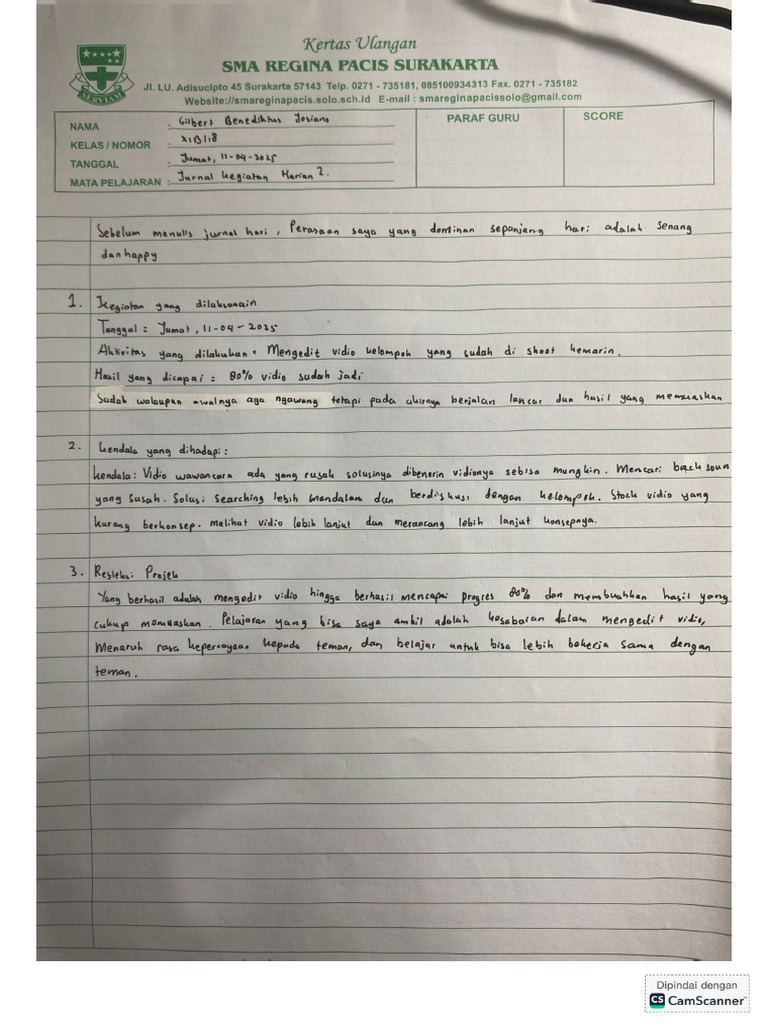 Kertas Ulangan
SMA REGINA PACIS SURAKARTA
Jl. LU. Adisucipto 45 Surakarta 57143 Telp. 0271 - 735181, 085100934313 Fax. 0271 - 735182
Website://smareginapacis.solo.sch.id E-mail : smareginapacissolo@gmail.com
SERVIAM
NAMA : Gilbert Benediktus Josiano
KELAS / NOMOR : XIB/18
TANGGAL : Jumat, 11-04-2025
MATA PELAJARAN : Jurnal kegiatan Harian 2.
PARAF GURU
SCORE
Sebelum menulis jurnal hari, Perasaan saya yang dominan sepanjang hari adalah senang
dan happy
1. Kegiatan yang dilaksanain
Tanggal : Jumat, 11-04-2025
Aktivitas yang dilakukan : Mengedit vidio kelompok yang sudah di shoot kemarin.
Hasil yang dicapai : 80% vidio sudah jadi
Sudah walaupun awalnya aga ngawang tetapi pada akirnya berjalan lancar dan hasil yang memuaskan
2. kendala yang dihadapi :
kendala : Vidio wawancara ada yang rusak solusinya dibenerin vidionya sebisa mungkin. Mencari back soun
yang susah. Solusi searching lebih mendalam dan berdiskusi dengan kelompok. Stock vidio yang
kurang berkonsep. melihat vidio lebih lanjut dan merancang lebih lanjut konsepnya.
3. Refleksi Projek
Yang berhasil adalah mengedit vidio hingga berhasil mencapai progres 80% dan membuahkan hasil yang
cukup memuaskan. Pelajaran yang bisa saya ambil adalah kesabaran dalam mengedit vidio,
Menaruh rasa kepercayaan kepada teman, dan belajar untuk bisa lebih bekerja sama dengan
teman.
Dipindai dengan
CS CamScanner